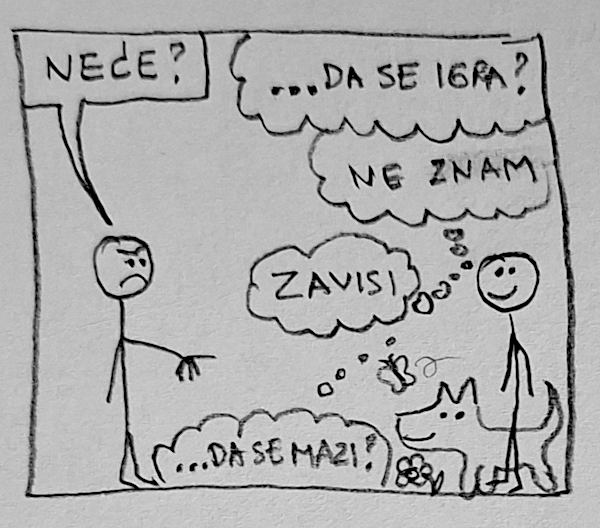 NEĆE?
...DA SE IGRA?
NE ZNAM
ZAVISI
...DA SE MAZI?